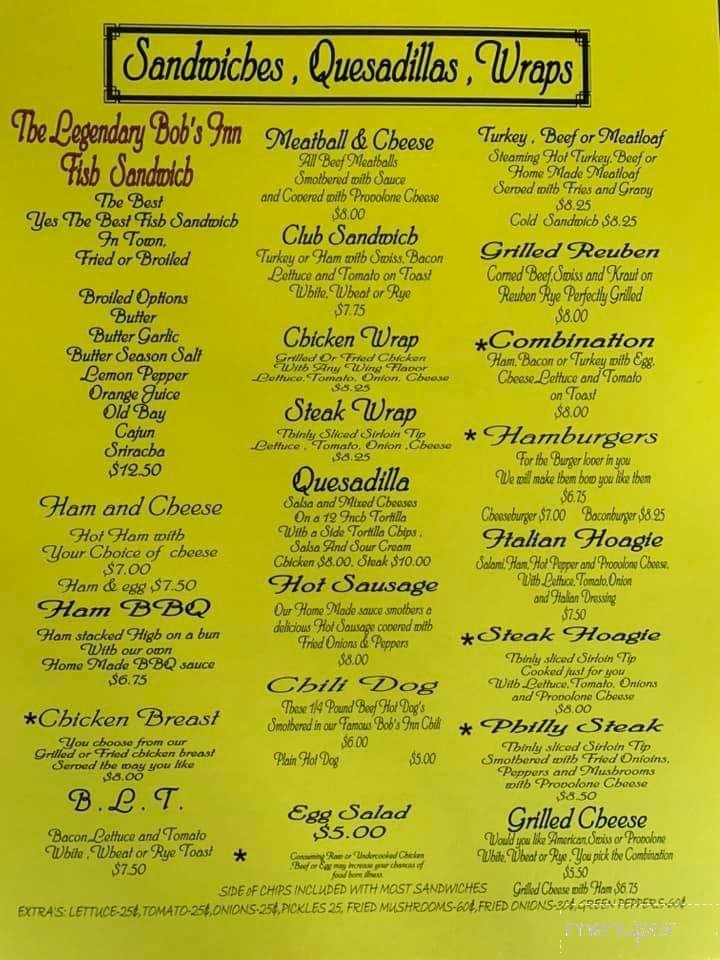 Sandwiches , Quesadillas , Wraps
The Legendary Bob's Inn
Fish Sandwich
The Best
Yes The Best Fish Sandwich
In Town,
Fried or Broiled
Broiled Options
Butter
Butter Garlic
Butter Season Salt
Lemon Pepper
Orange Juice
Old Bay
Cajun
Sriracha
$12.50
Ham and Cheese
Hot Ham with
Your Choice of cheese
$7.00
Ham & egg $7.50
Ham BBQ
Ham stacked High on a bun
With our own
Home Made BBQ sauce
$6.75
*Chicken Breast
You choose from our
Grilled or Fried chicken breast
Served the way you like
$8.00
B.L.T.
Bacon,Lettuce and Tomato
White ,Wheat or Rye Toast
$7.50
Meatball & Cheese
All Beef Meatballs
Smothered with Sauce
and Covered with Provolone Cheese
$8.00
Club Sandwich
Turkey or Ham with Swiss,Bacon
Lettuce and Tomato on Toast
White,Wheat or Rye
$7.75
Chicken Wrap
Grilled Or Fried Chicken
With Any Wing Flavor
Lettuce,Tomato, Onion, Cheese
$8.25
Steak Wrap
Thinly Sliced Sirloin Tip
Lettuce , Tomato, Onion ,Cheese
$8.25
Quesadilla
Salsa and Mixed Cheeses
On a 12 Inch Tortilla
With a Side Tortilla Chips ,
Salsa And Sour Cream
Chicken $8.00, Steak $10.00
Hot Sausage
Our Home Made sauce smothers a
delicious Hot Sausage covered with
Fried Onions & Peppers
$8.00
Chili Dog
These 1/4 Pound Beef Hot Dog's
Smothered in our Famous Bob's Inn Chili
$6.00
Plain Hot Dog $5.00
Egg Salad
$5.00
* Consuming Raw or Undercooked Chicken
,Beef or Egg may increase your chances of
food born illness.
Turkey , Beef or Meatloaf
Steaming Hot Turkey,Beef or
Home Made Meatloaf
Served with Fries and Gravy
$8.25
Cold Sandwich $8.25
Grilled Reuben
Corned Beef,Swiss and Kraut on
Reuben Rye Perfectly Grilled
$8.00
*Combination
Ham,Bacon or Turkey with Egg,
Cheese,Lettuce and Tomato
on Toast
$8.00
* Hamburgers
For the Burger lover in you
We will make them how you like them
$6.75
Cheeseburger $7.00 Baconburger $8.25
Italian Hoagie
Salami,Ham,Hot Pepper and Provolone Cheese,
With Lettuce,Tomato,Onion
and Italian Dressing
$7.50
*Steak Hoagie
Thinly sliced Sirloin Tip
Cooked just for you
With Lettuce,Tomato, Onions
and Provolone Cheese
$8.00
* Philly Steak
Thinly sliced Sirloin Tip
Smothered with Fried Onioins,
Peppers and Mushrooms
with Provolone Cheese
$8.50
Grilled Cheese
Would you like American,Swiss or Provolone
White,Wheat or Rye ,You pick the Combination
$5.50
Grilled Cheese with Ham $6.75
SIDE OF CHIPS INCLUDED WITH MOST SANDWICHES
EXTRA'S: LETTUCE-25¢,TOMATO-25¢,ONIONS-25¢,PICKLES 25, FRIED MUSHROOMS-60¢,FRIED ONIONS-30¢,GREEN PEPPERS-60¢
menupix